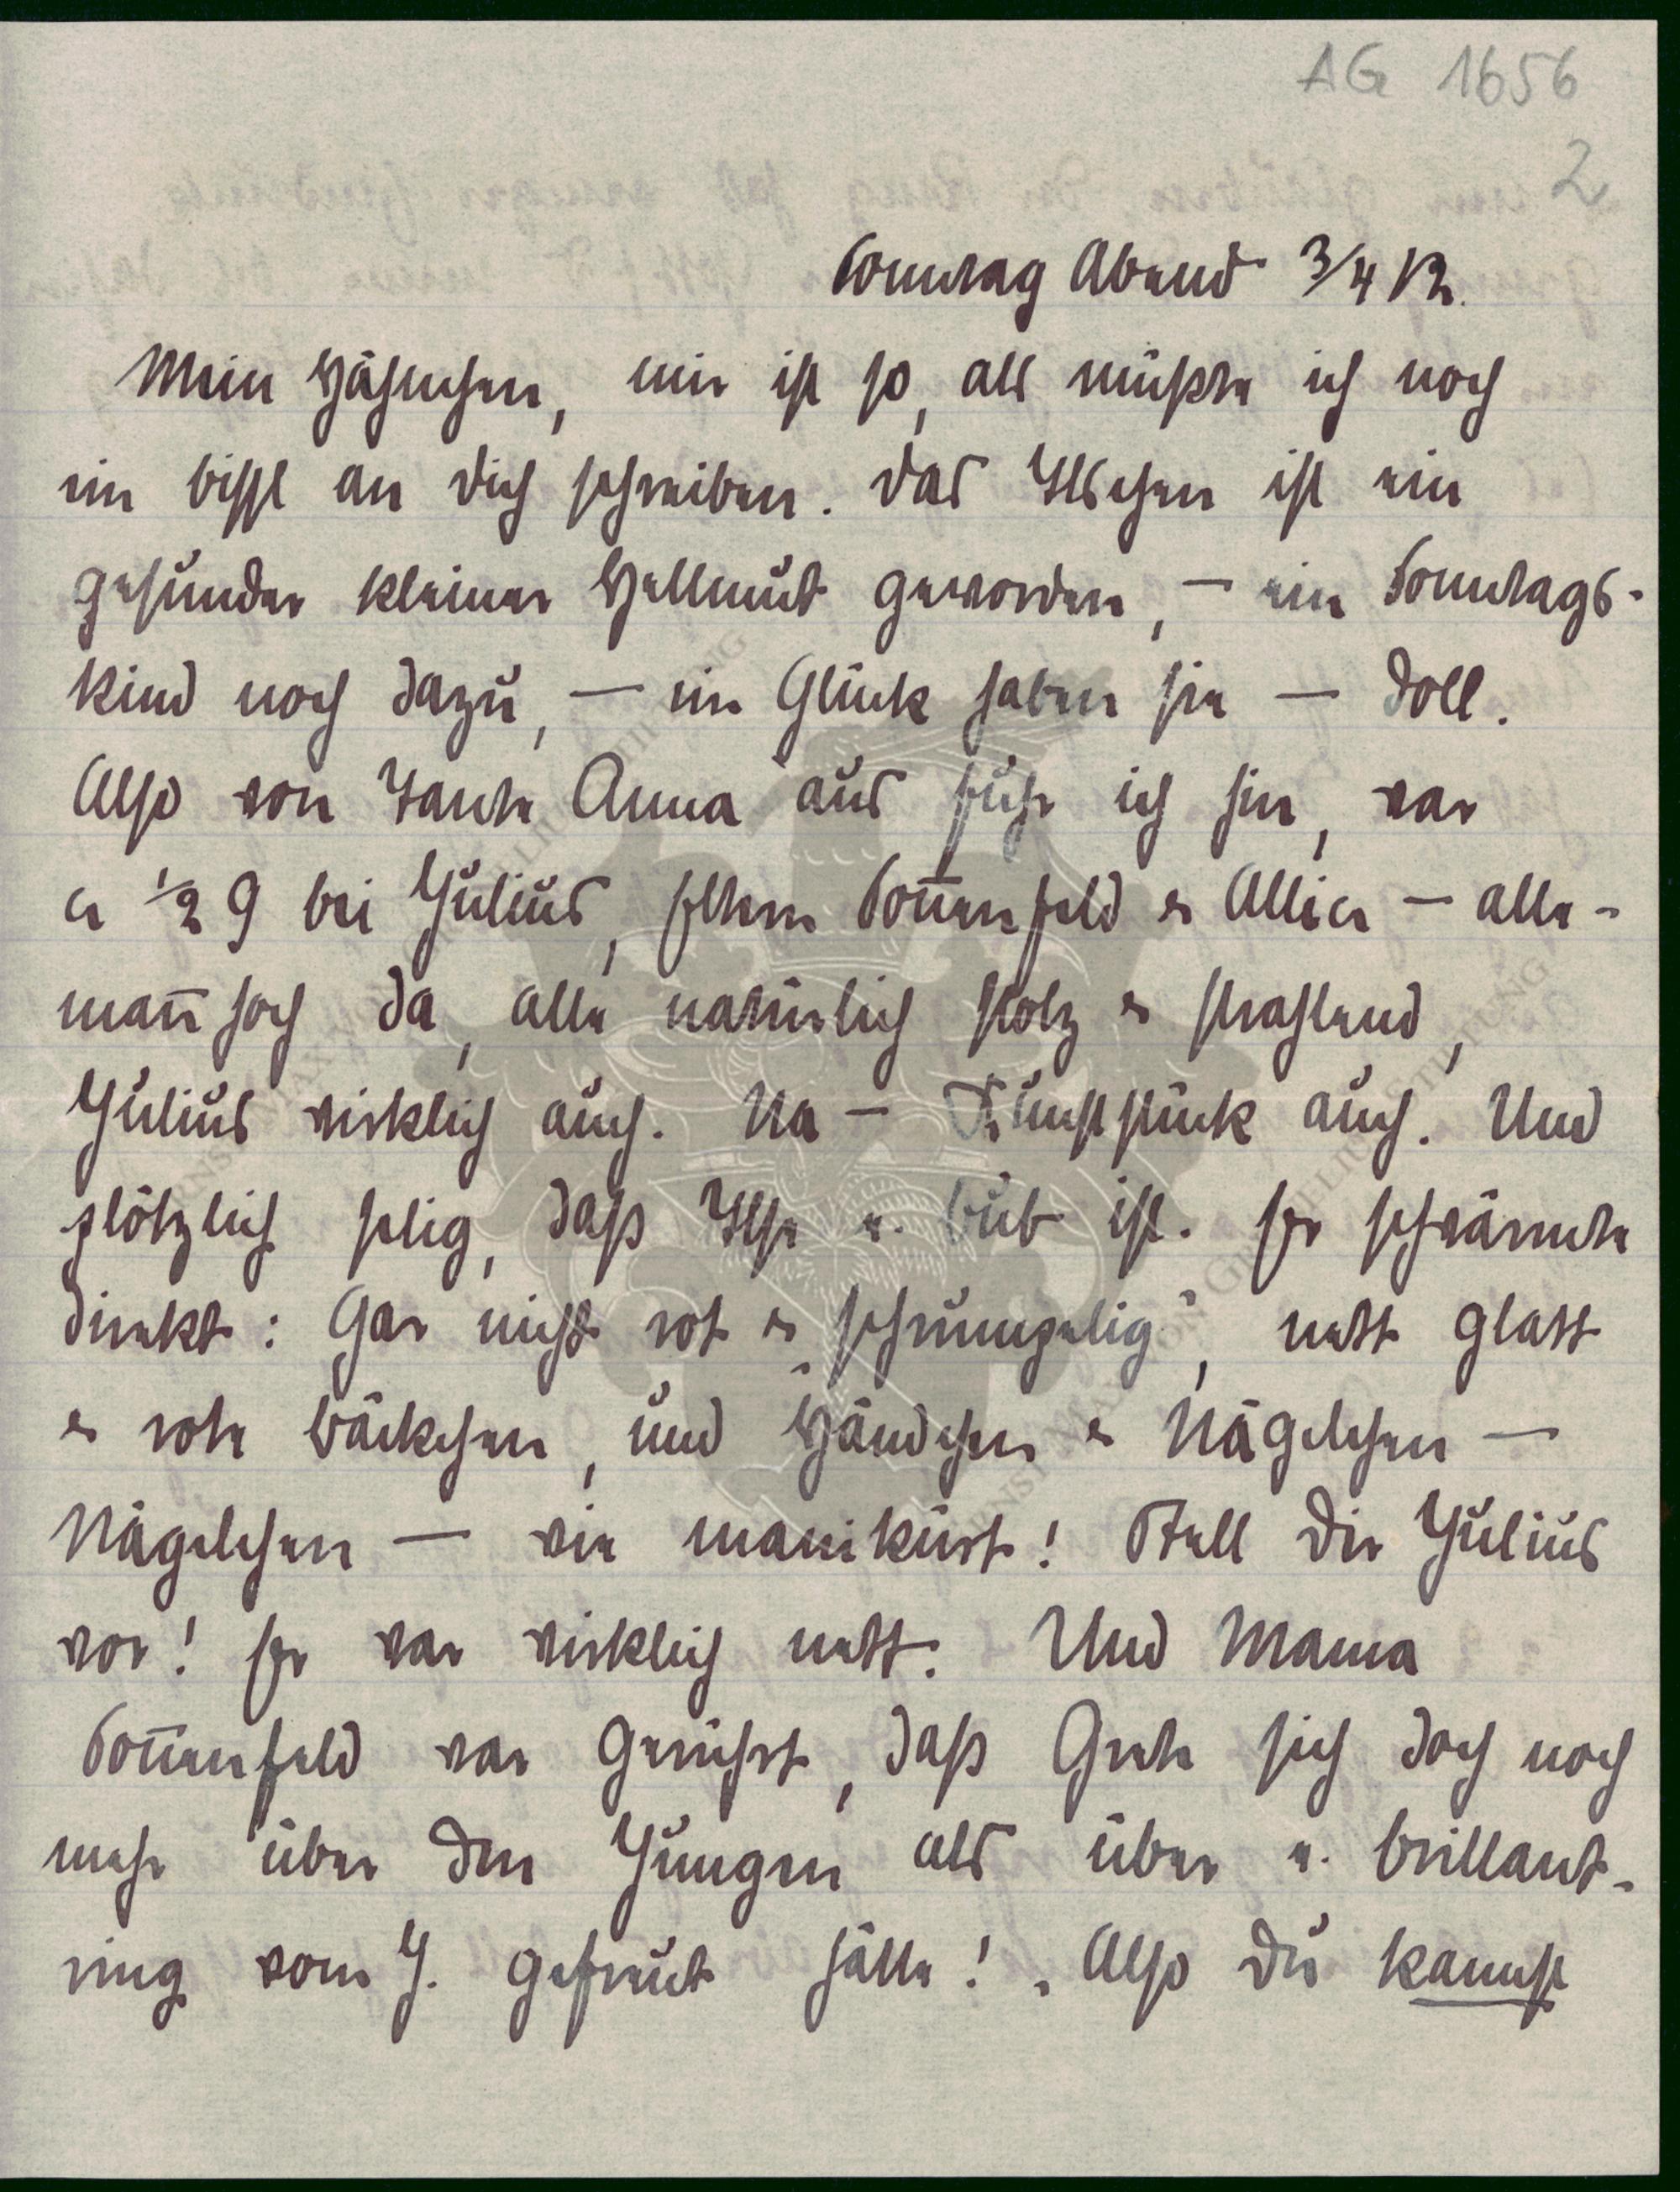 AG 1656
2
Sonntag Abend 3/4 12.
Mein Häschen, mir ist so, als müßte ich noch
ein bissl an dich schreiben. Das Ilschen ist ein
gesunder kleiner Hellmut geworden, — ein Sonntags-
kind noch dazu, — ein Glück haben sie — doll.
Also von Tante Anna aus fuhr ich hin, war
ca 1/2 9 bei Julius, Eltern Sonnenfeld & Allice — alle-
mann hoch da, alle natürlich stolz & strahlend,
Julius wirklich auch. Na — Kunststück auch. Und
plötzlich selig, daß Ilse e. Bub ist. Er schwärmte
direkt: Gar nicht rot & „schrumpelig", nett glatt
& rote Bäckchen, und Händchen & Nägelchen —
Nägelchen — wie manikürt! Stell dir Julius
vor! Er war wirklich nett. Und Mama
Sonnenfeld war gerührt, daß Grete sich doch noch
mehr über den Jungen als über e. Brillant-
ring vom J. gefreut hätte! . Also du kannst